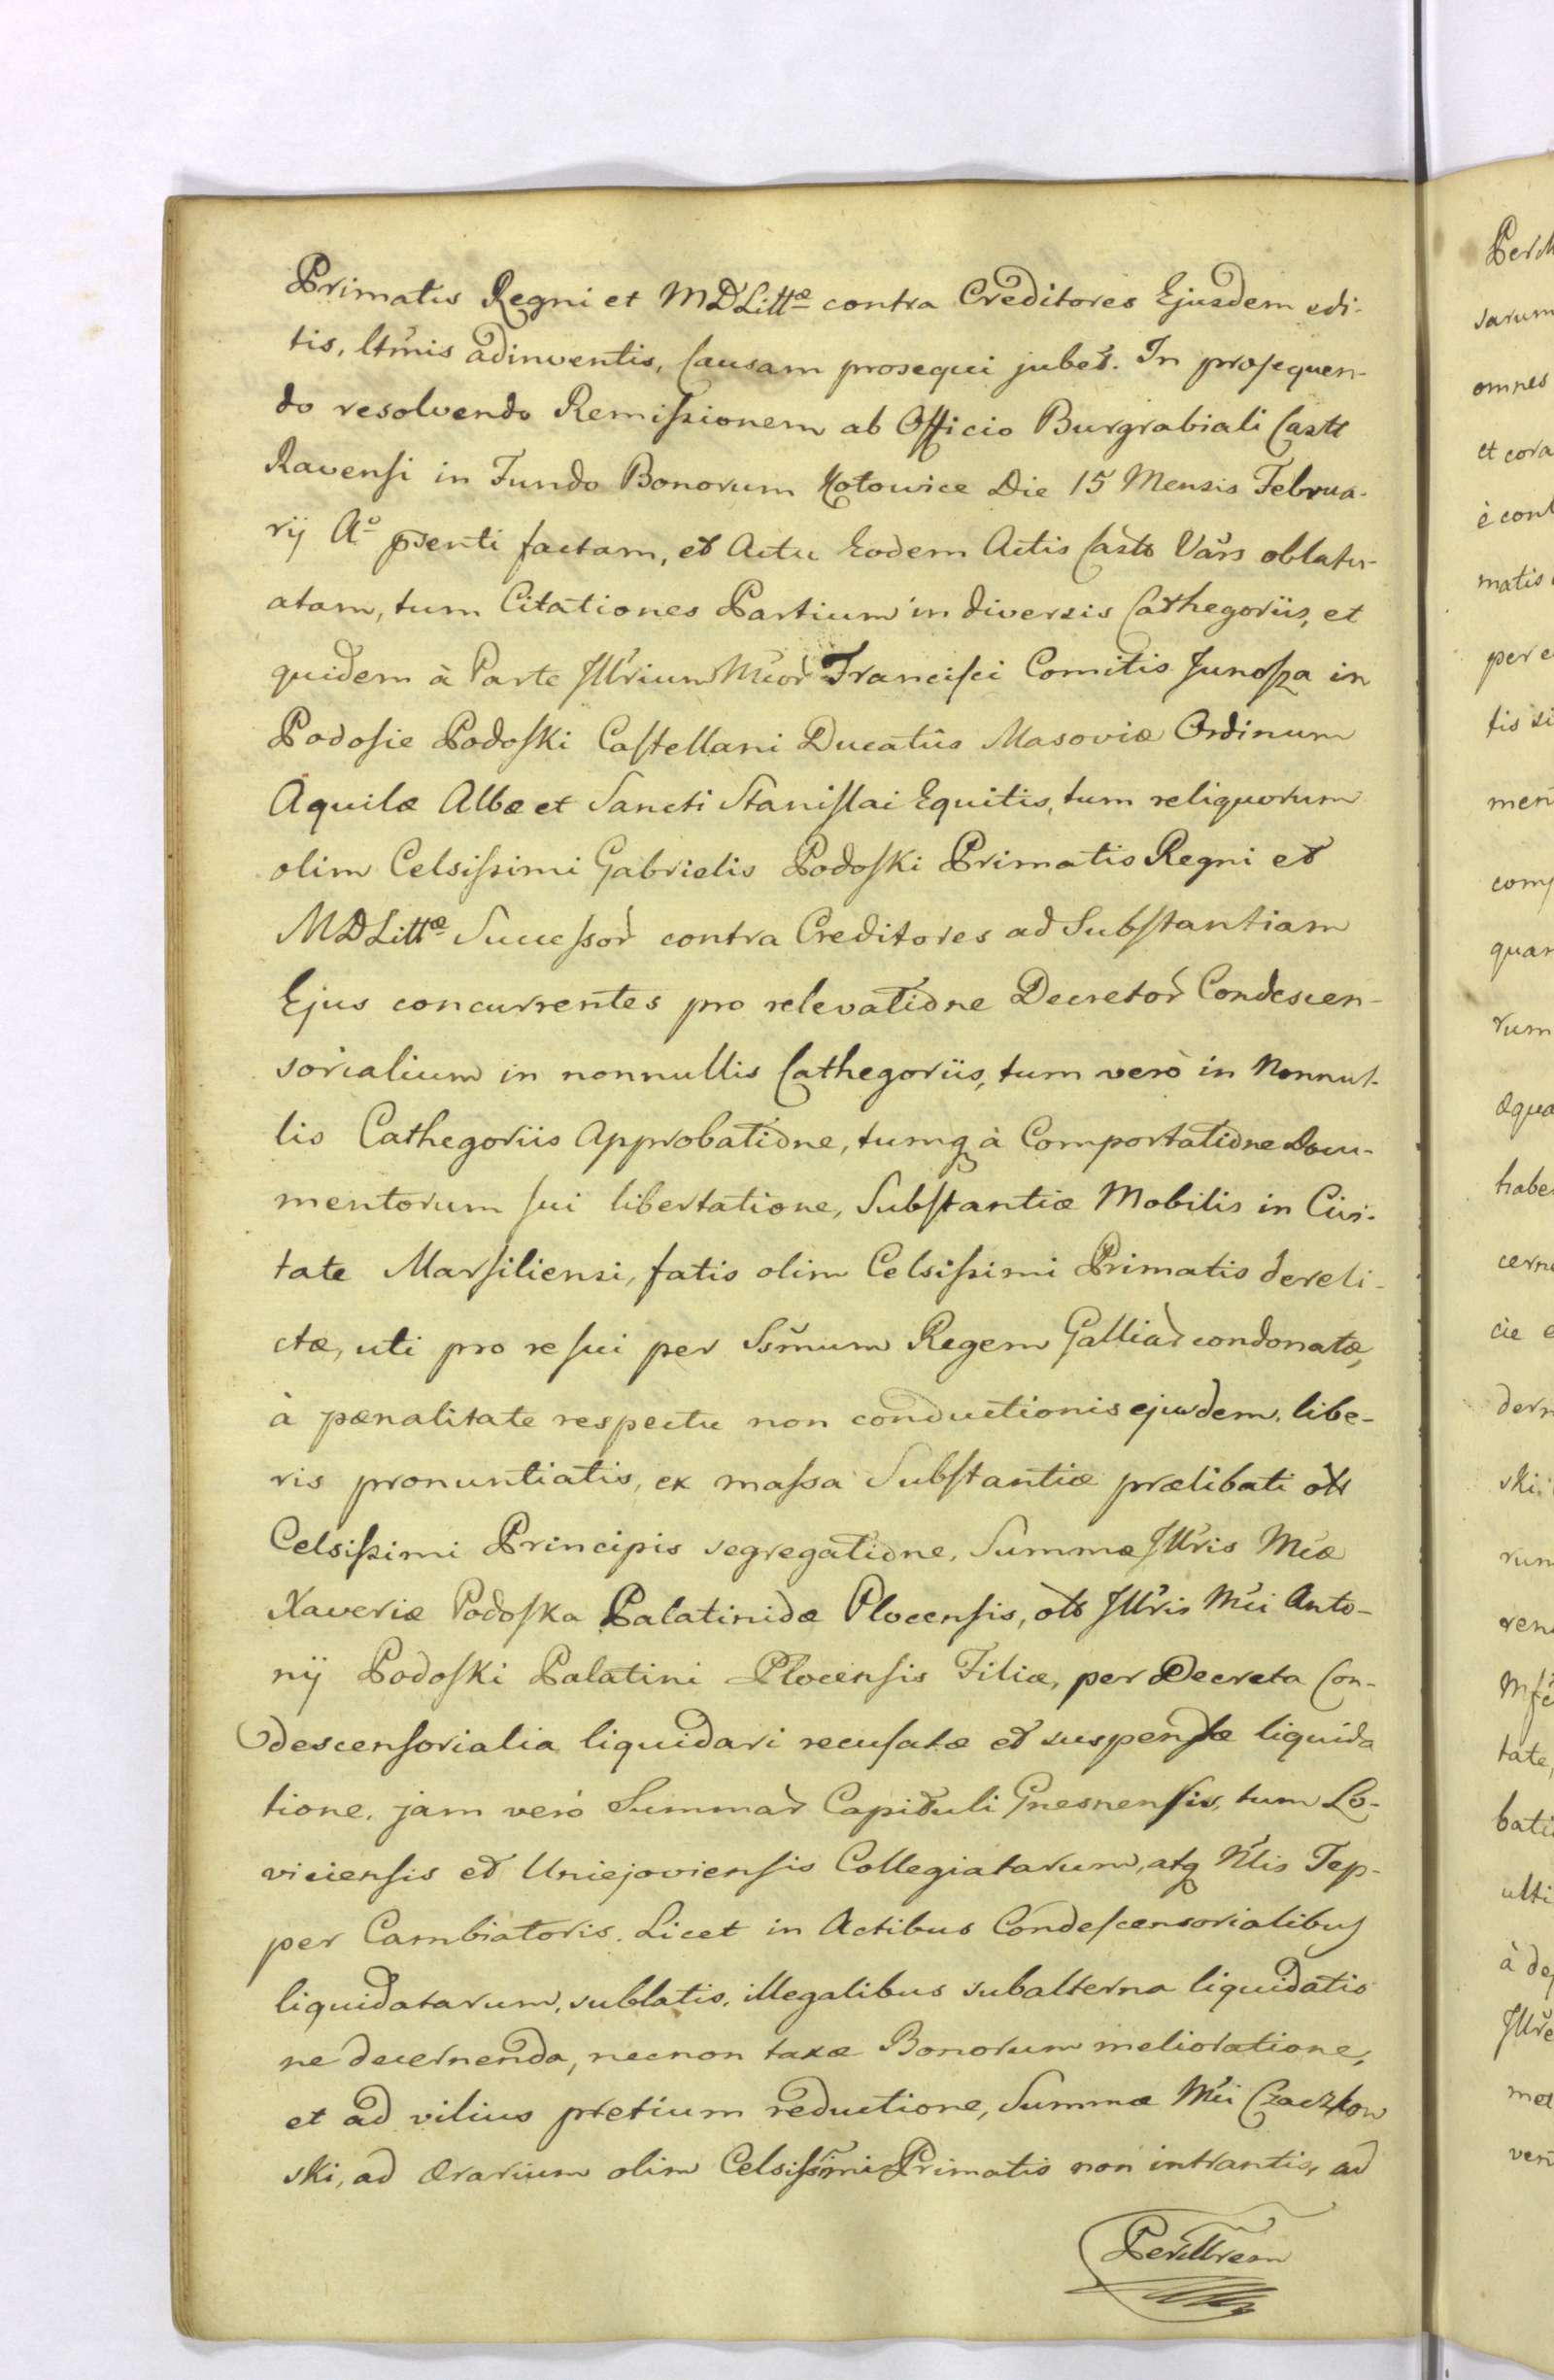 Primatis Regni et MDLittæ contra Creditores Ejusdem edi-
tis, ltmis adinventis, Causam prosequi jubet. In prosequen-
do resolvendo Remissionem ab Officio Burgrabiali Castr
Ravensi in Fundo Bonorum Kotowice Die 15 Mensis Februa-
rij Aº psenti factam, et Actu Eodem Actis Castr Vars oblatu-
atam, tum Citationes Partium in diversis Cathegoriis, et
quidem à Parte Jllrium Mcor Francisci Comitis Junosza in
Podosie Podoski Castellani Ducatûs Masoviæ Ordinum
Aquilæ Albæ et Sancti Stanislai Equitis, tum reliquorum
olim Celsissimi Gabrielis Podoski Primatis Regni et
MDLittæ Successor contra Creditores ad Substantiam
Ejus concurrentes pro relevatione Decretor Condescen-
sorialium in nonnullis Cathegoriis, tum verò in Nonnul-
lis Cathegoriis Approbatione, tumq à Comportatione Docu-
mentorum sui libertatione, Substantiæ Mobilis in Civi-
tate Marsiliensi, fatis olim Celsissimi Primatis dereli-
ctæ, uti pro re sui per Ssmum Regem Galliar condonatæ,
à pænalitate respectu non conductionis ejusdem, libe-
ris pronuntiatis, ex massa Substantiæ prælibati olt
Celsissimi Principis segregatione, Summæ Jllris Mcæ
Xaveriæ Podoska Palatinidæ Plocensis, olt Jllris Mci Anto-
nij Podoski Palatini Plocensis Filiæ, per Decreta Con-
descensorialia liquidari recusatæ et suspensæ liquida
tione, jam verò Summar Capituli Gnesnensis, tum Lo-
viciensis et Uniejoviensis Collegiatarum, atq Nlis Tep-
per Cambiatoris. Licet in Actibus Condescensorialibus
liquidatarum, sublatis, illegalibus subalterna liquidatio
ne decernenda, necnon taxæ Bonorum melioratione,
et ad vilius pretium reductione, Summæ Mci Czaczkow
ski, ad Ærarium olim Celsissimi Primatis non intrantis, ad
Perillrem
Perill
sarum
omnes
et cora
è cont
matis
per e
tis si
men
comp
quan
rum
æqua
habe
cern
cie e
dem
ski
rum
tate,
bati
ulti
à de
Jllre
mo
ven